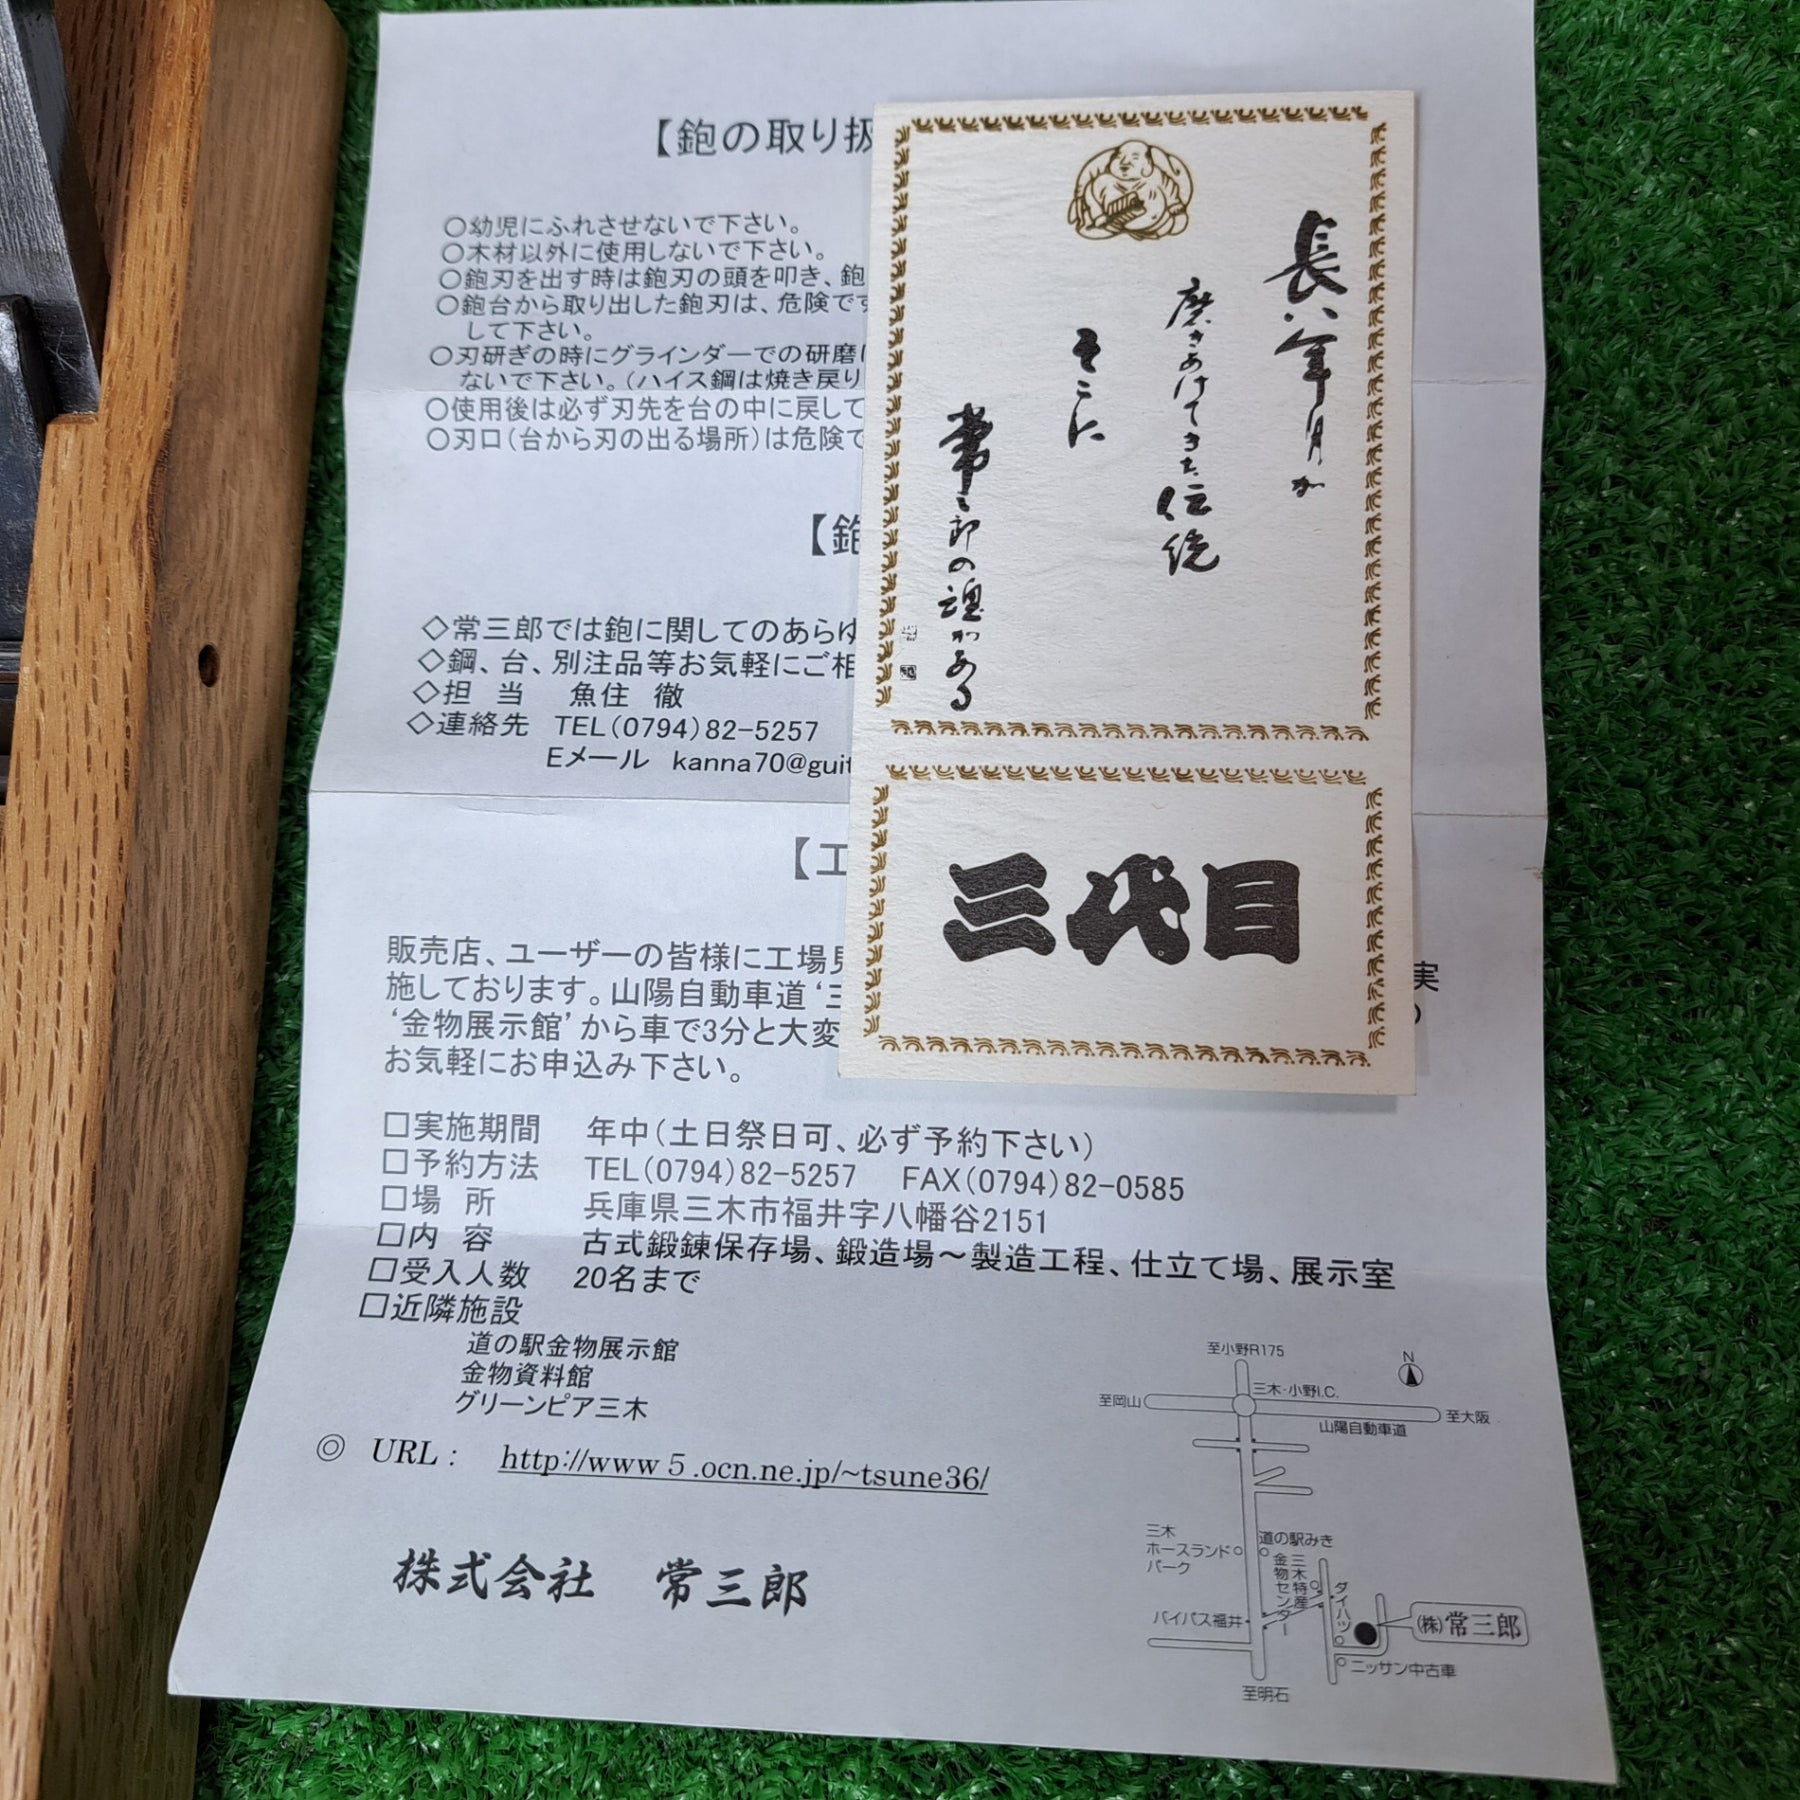 【鉋の取り扱
○幼児にふれさせないで下さい。
○木材以外に使用しないで下さい。
○鉋刃を出す時は鉋刃の頭を叩き、鉋
○鉋台から取り出した鉋刃は、危険です
して下さい。
○刃研ぎの時にグラインダーでの研磨は
ないで下さい。(ハイス鋼は焼き戻り
○使用後は必ず刃先を台の中に戻して
○刃口(台から刃の出る場所)は危険で
【鉋
◇常三郎では鉋に関してのあらゆ
◇鋼、台、別注品等お気軽にご相
◇担 当 魚住 徹
◇連絡先 TEL(0794)82-5257
Eメール kanna70@guit
【工
販売店、ユーザーの皆様に工場見
実
施しております。山陽自動車道‘三
‘金物展示館’から車で3分と大変
お気軽にお申込み下さい。
□実施期間 年中(土日祭日可、必ず予約下さい)
□予約方法 TEL(0794)82-5257 FAX(0794)82-0585
□場 所 兵庫県三木市福井字八幡谷2151
□内 容 古式鍛錬保存場、鍛造場～製造工程、仕立て場、展示室
□受入人数 20名まで
□近隣施設
道の駅金物展示館
金物資料館
グリーンピア三木
◎ URL : http://www５.ocn.ne.jp/~tsune36/
株式会社 常三郎
長い年月が
磨きあげてきた伝統
そこに
常三郎の魂がある
三代目
至小野R175
N
三木・小野I.C.
至岡山
至大阪
山陽自動車道
三木
ホースランド
パーク
道の駅みき
三木特産
金物センター
ダイハツ
バイパス福井
㈱常三郎
ニッサン中古車
至明石